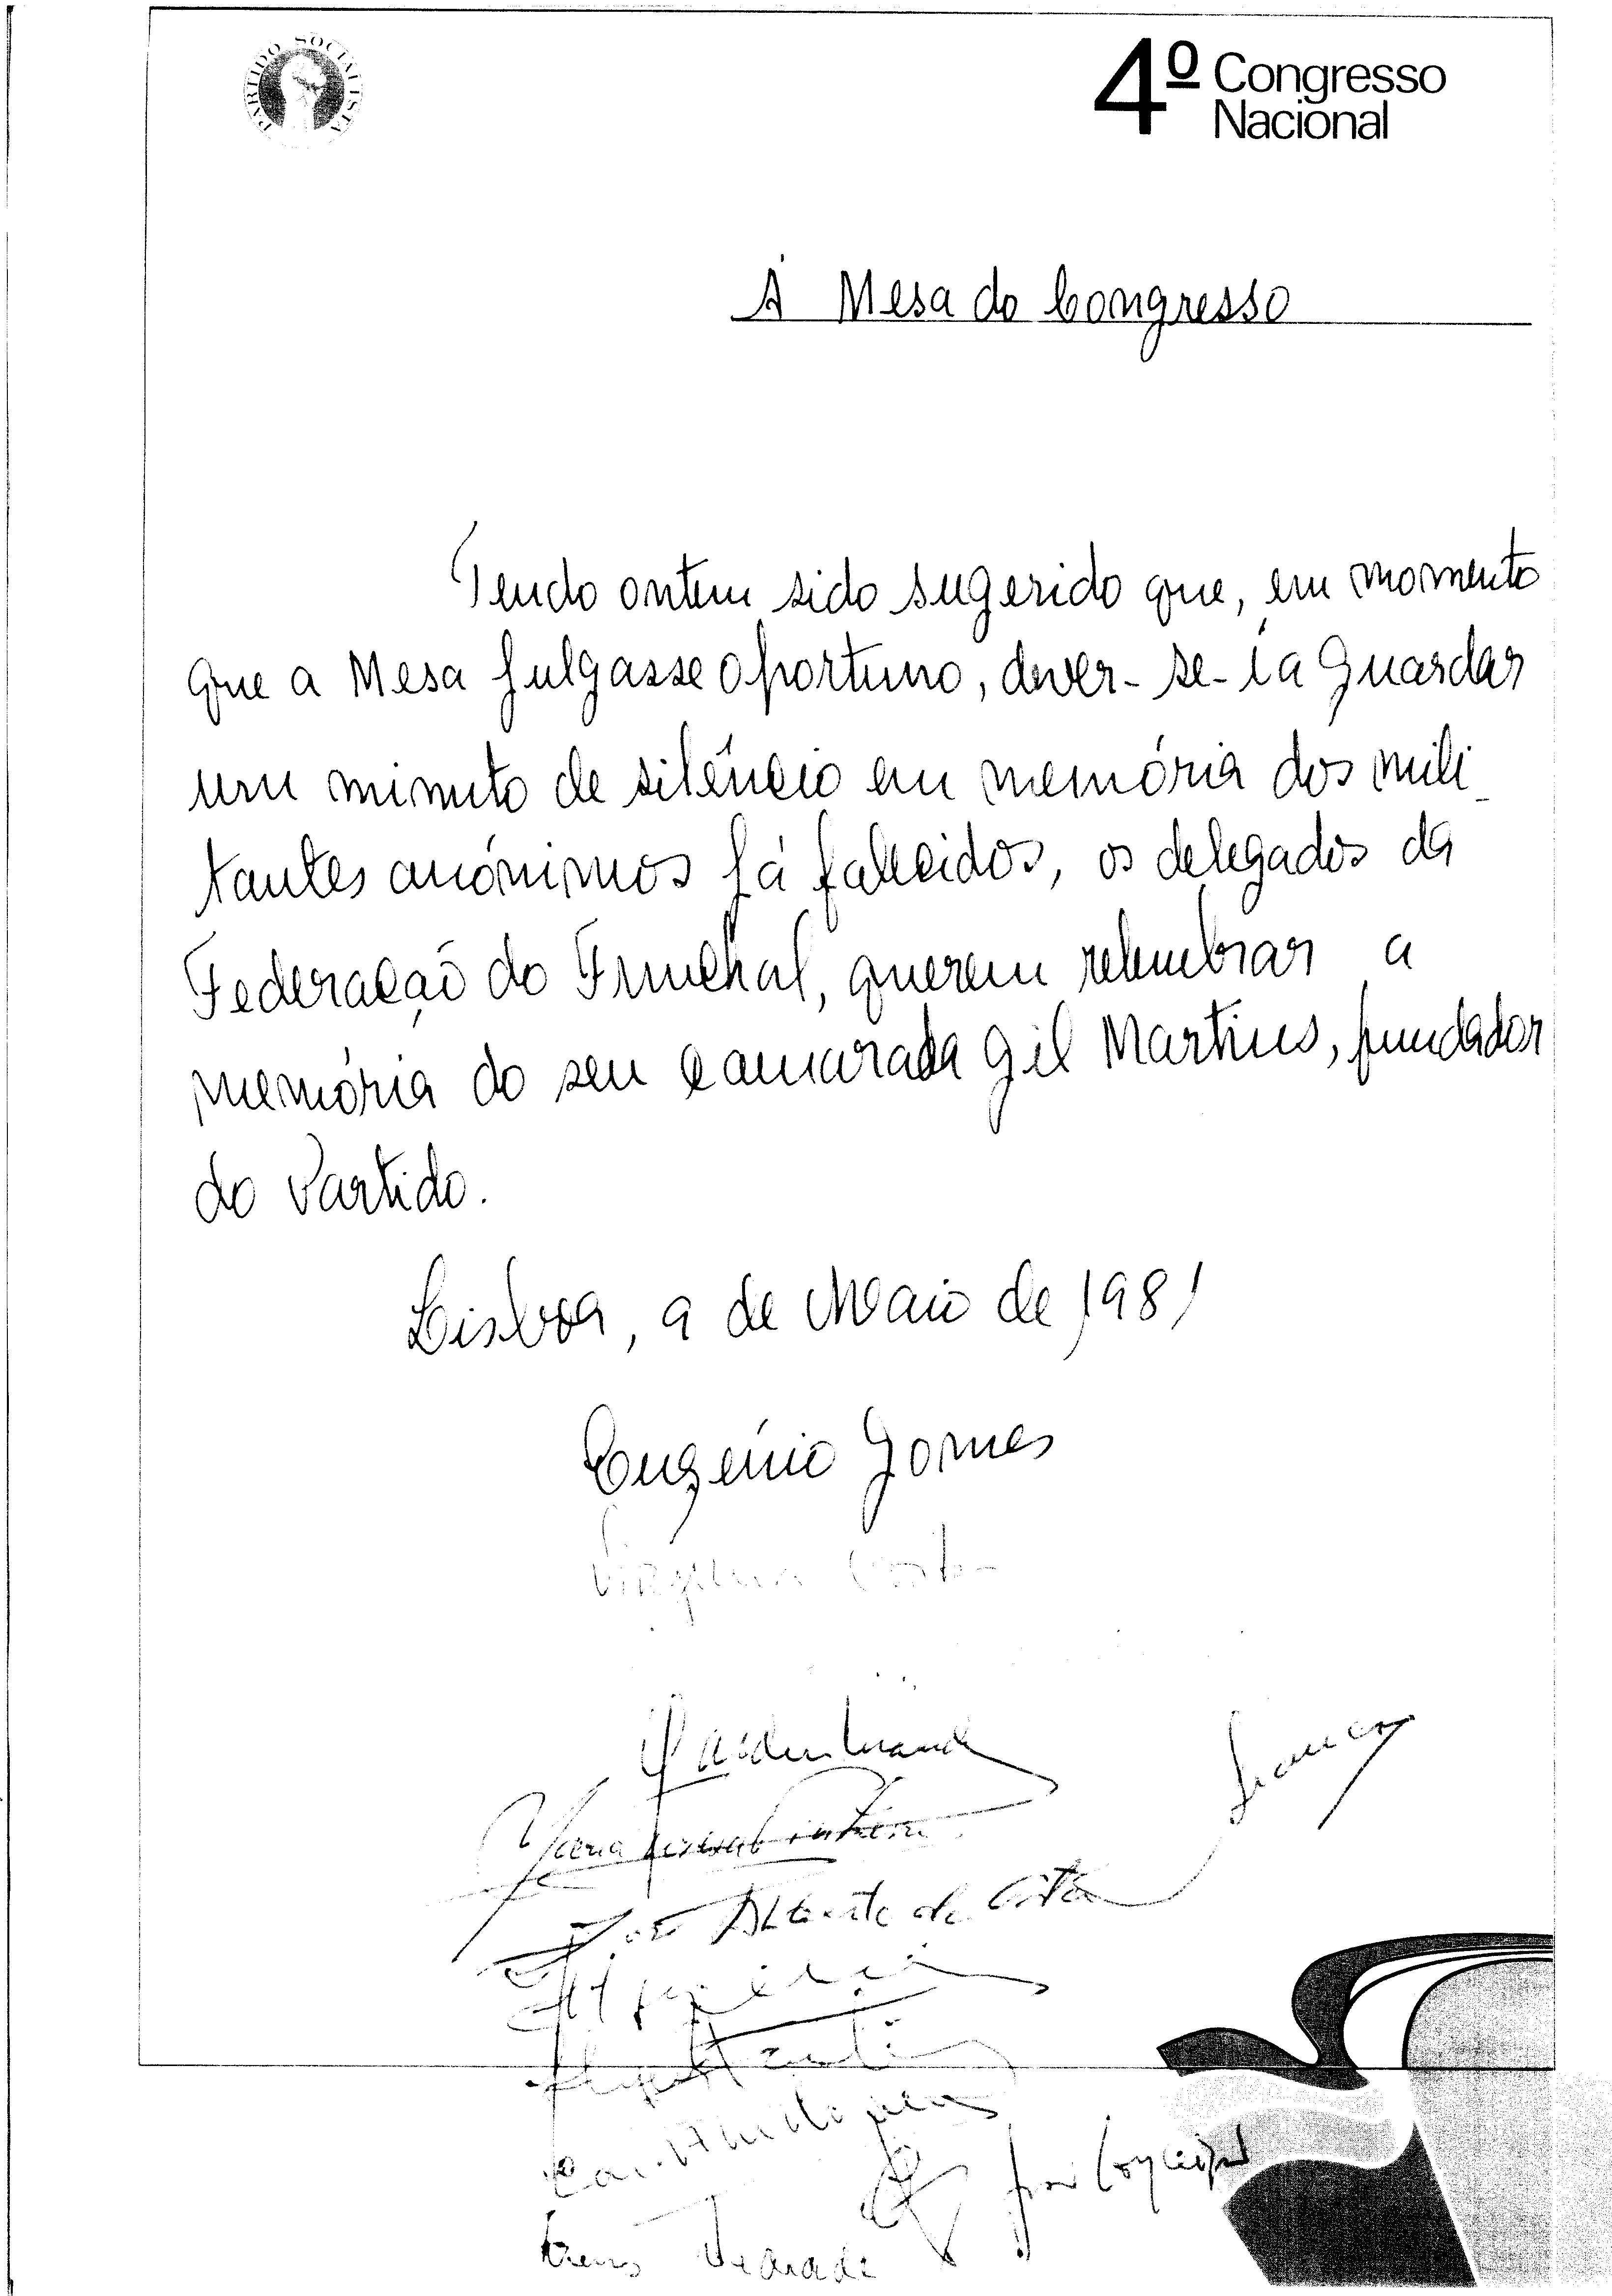 PARTIDO SOCIALISTA
4º Congresso
Nacional
À Mesa do Congresso
Tendo ontem sido sugerido que, em momento
que a Mesa julgasse oportuno, dever-se-ia guardar
um minuto de silêncio em memória dos mili-
tantes anónimos já falecidos, os delegados da
Federação do Funchal, querem relembrar a
memória do seu camarada Gil Martins, fundador
do Partido.
Lisboa, 9 de Maio de 1981
Eugénio Gomes
Costa
Maria
Alberto da Costa